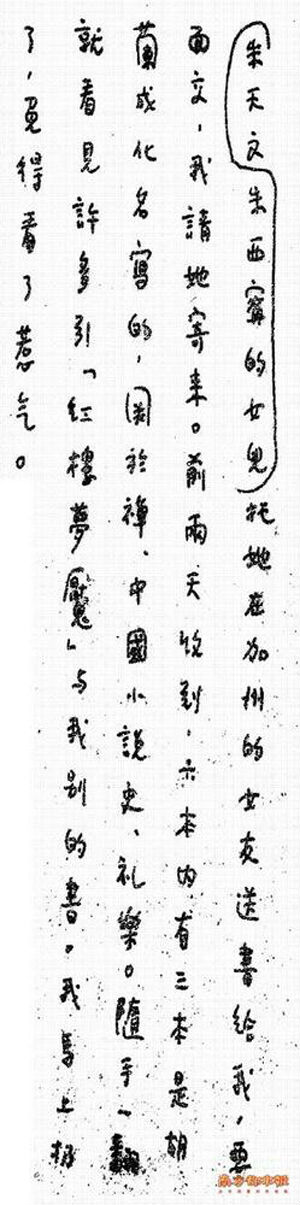 朱天文朱西甯的女兒托她在加州的女友送書給我，要
面交，我請她寄來。前兩天收到，六本內有三本是胡
蘭成化名寫的，関於禪、中國小說史、礼樂。隨手一翻
就看見許多引「紅樓夢魘」与我别的書，我馬上扔
了，免得看了惹气。
南方都市报